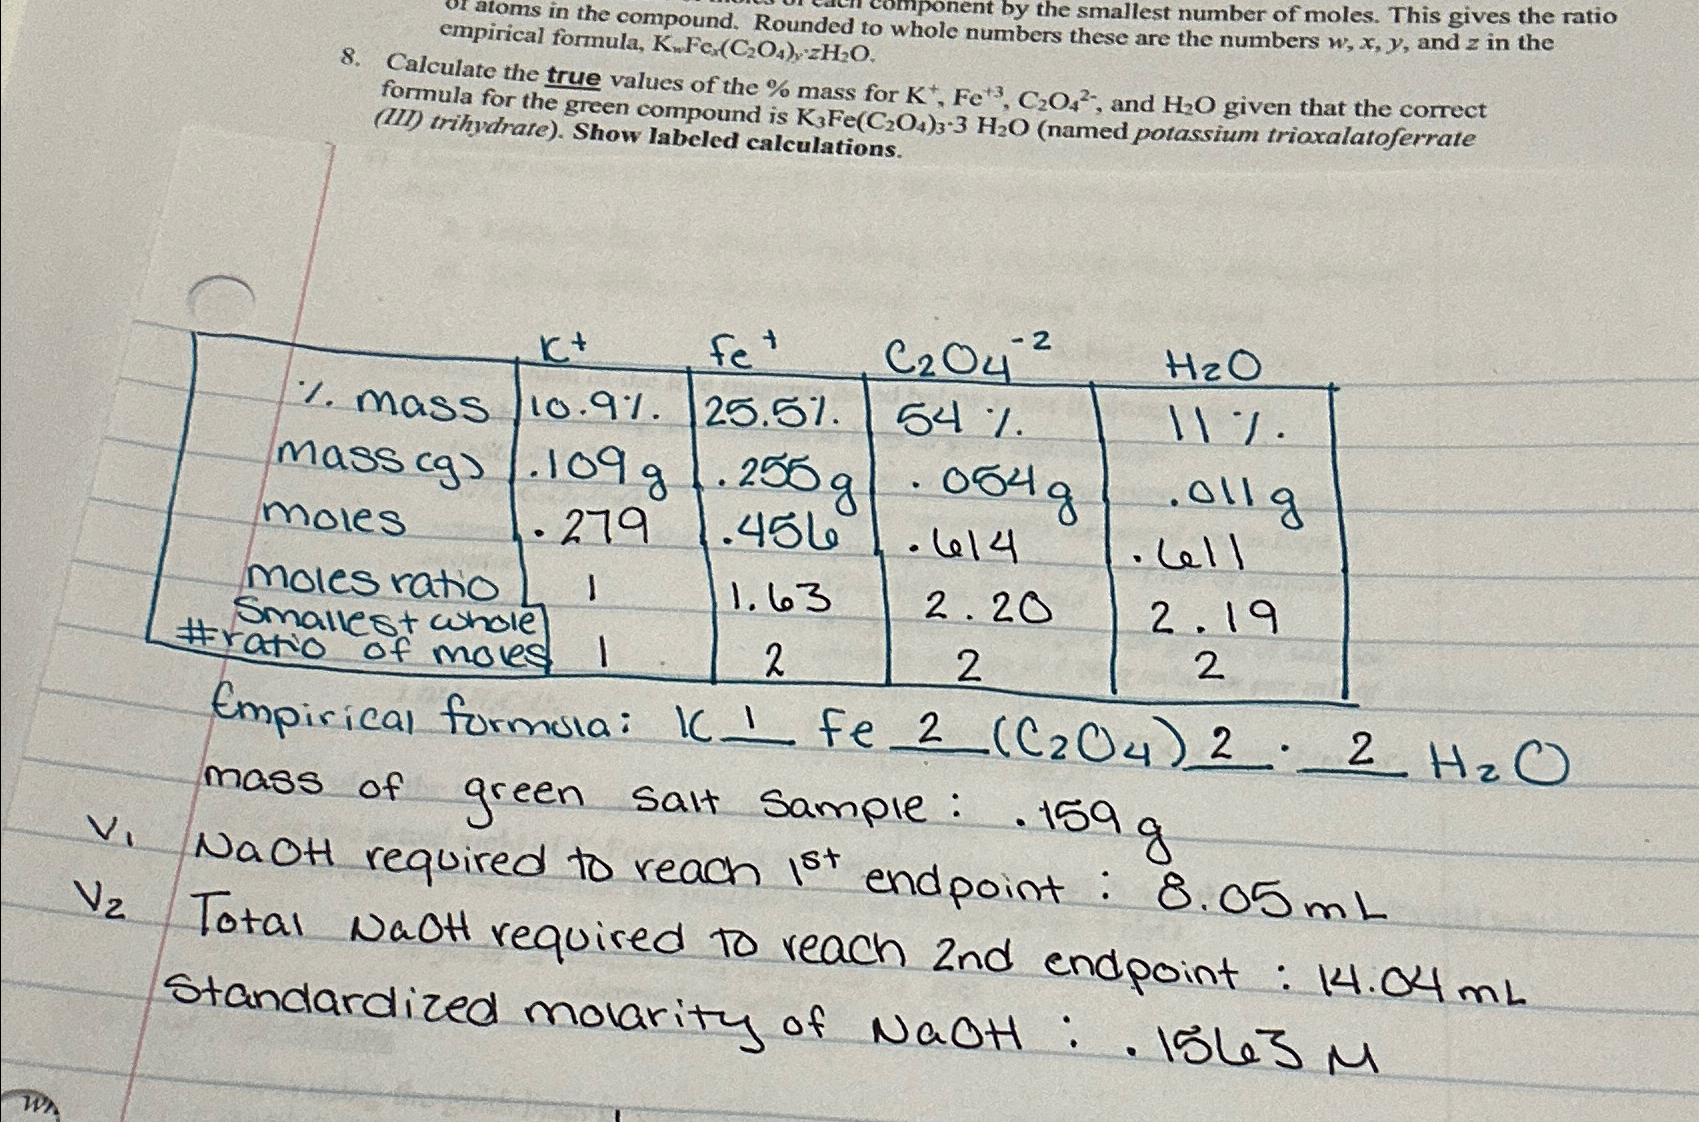 of atoms in the compound. Rounded to whole numbers these are the numbers w, x, y, and z in the
component by the smallest number of moles. This gives the ratio
empirical formula, KwFex(C2O4)y·zH2O.
8. Calculate the true values of the % mass for K+, Fe+3, C2O4 2-, and H2O given that the correct
formula for the green compound is K3Fe(C2O4)3·3 H2O (named potassium trioxalatoferrate
(III) trihydrate). Show labeled calculations.
K+ Fe+ C2O4-2 H2O
% mass 10.9% 25.5% 54% 11%
mass (g) .109g .255g .054g .011g
moles .279 .456 .614 .611
moles ratio 1 1.63 2.20 2.19
Smallest whole
#ratio of moles 1 2 2 2
Empirical formula: K 1 Fe 2 (C2O4) 2 · 2 H2O
mass of green salt sample: .159 g
V1 NaOH required to reach 1st endpoint: 8.05mL
V2 Total NaOH required to reach 2nd endpoint: 14.04mL
Standardized molarity of NaOH: .1563 M